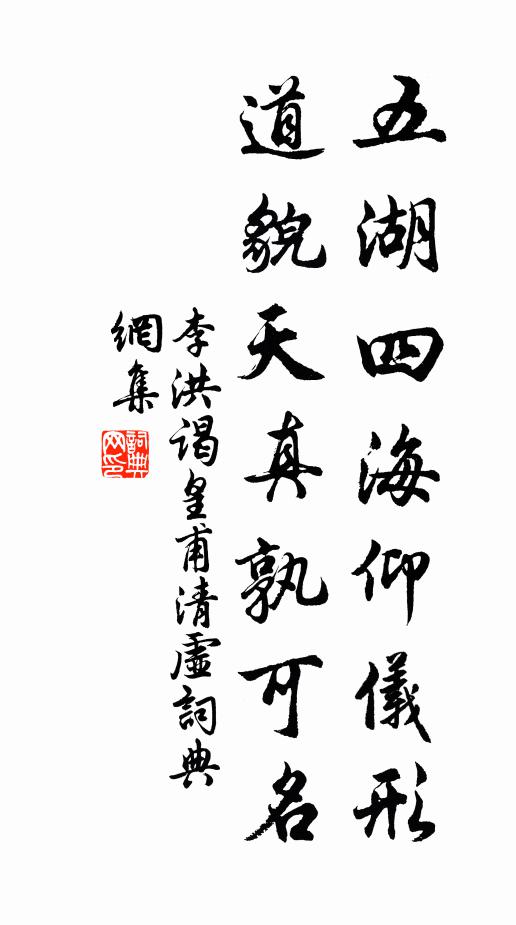 五湖四海仰儀形
道貌天真孰可名
李洪謁皇甫清虛詞典
網集
詞典
网印